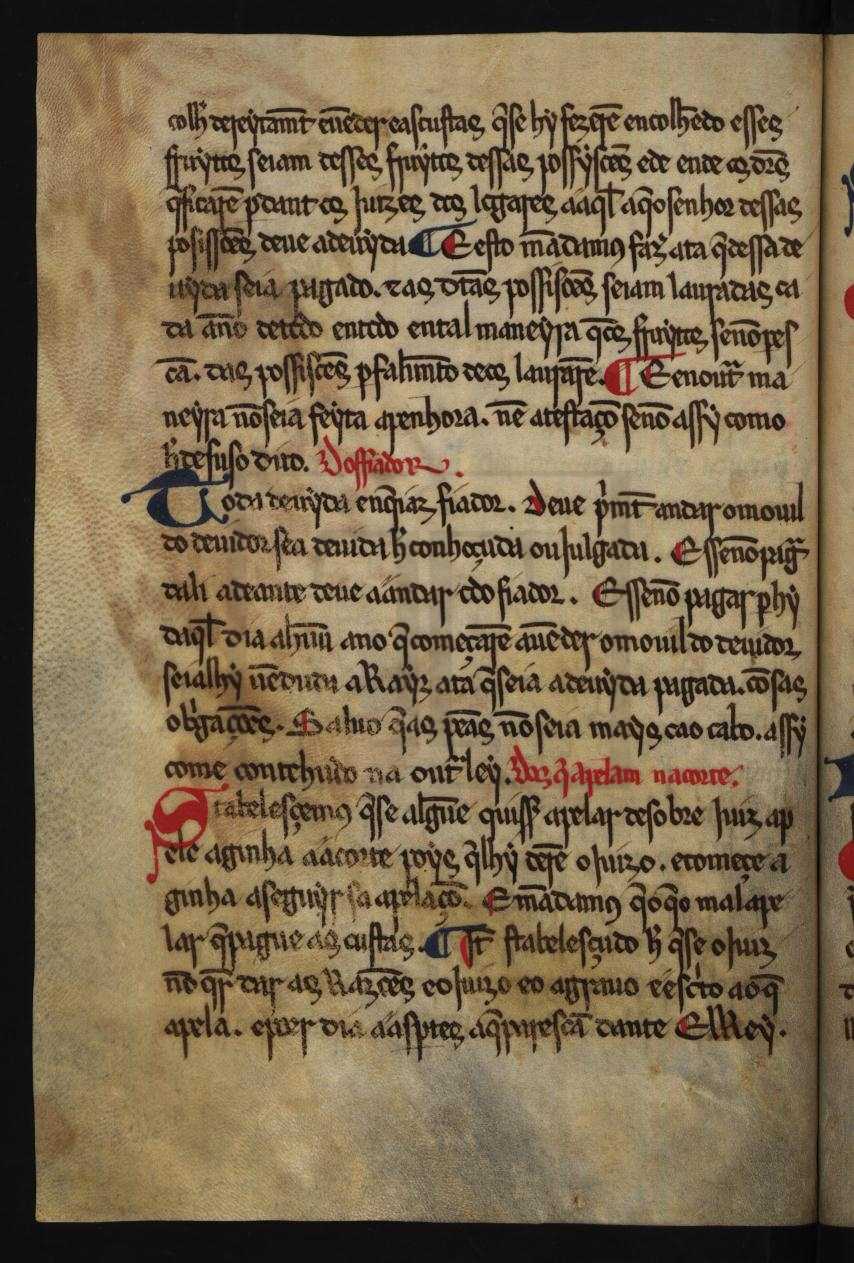 colh̃ dereytamt̃ euẽder eas custas q̃ se hy fezerẽ en colhẽdo esses
ffruytos seiam dessos ffruytos dessas possyssoẽs e de ende os d̃ros
q̃ ficarẽ perdant os Juizes dos logares a aq̃l a q̃ o senhor dessas
posissoẽs deue a deuyda ¶ E esto mãdamus faz̃ ata q̃ dessa de
uyda seia pagado. e as d̃tas possissoẽs seiam lauradas ca
da ano de tedo en tedo en tal maneyra q̃ os ffruytos se nõ pes
cã. das possissoẽs per falimẽto de os laurarẽ. ¶ E en out̃ ma
neyra nõ seia feyta apenhora. nẽ a testaçõ se nõ assy como
h̃ de suso dito. Do ffiador.
Toda deuyda en q̃ iaz fiador. Deue p̃mt̃ andar o mouil
do deuidor se a deuida h̃ conheçuda ou Julgada. E sse nõ pag̃
dali adeante deue a andar edo fiador. E sse nõ pagar per hy
daq̃l dia a hũu ano q̃ começarẽ a uẽder o mouil do deuidor
seia lhy uẽduda a Rayz ata q̃ seia a deuyda pagada. cõ sas
obrigaçoẽs. Saluo q̃ as peãs nõ seia mays ca o cabo. assy
come contehudo na out̃ ley. Dos q̃ apelam na corte.
Stabelesçemus q̃ se algũe quiss̃ apelar de sobre Juiz ap
ele aginha a a corte poys q̃ lhy derẽ o Juizo. e começe a
ginha a seguyr sa apelaçõ. E mãdamus q̃ o q̃ o mal ape
lar q̃ pague as custas. ¶ It̃ stabelesçudo h̃ q̃ se o Juiz
nõ q̃r dar as Razoẽs e o Juizo e o agrauo e escito ao q̃
apela. e poer dia a as partes a q̃ parescã dante ElRey.